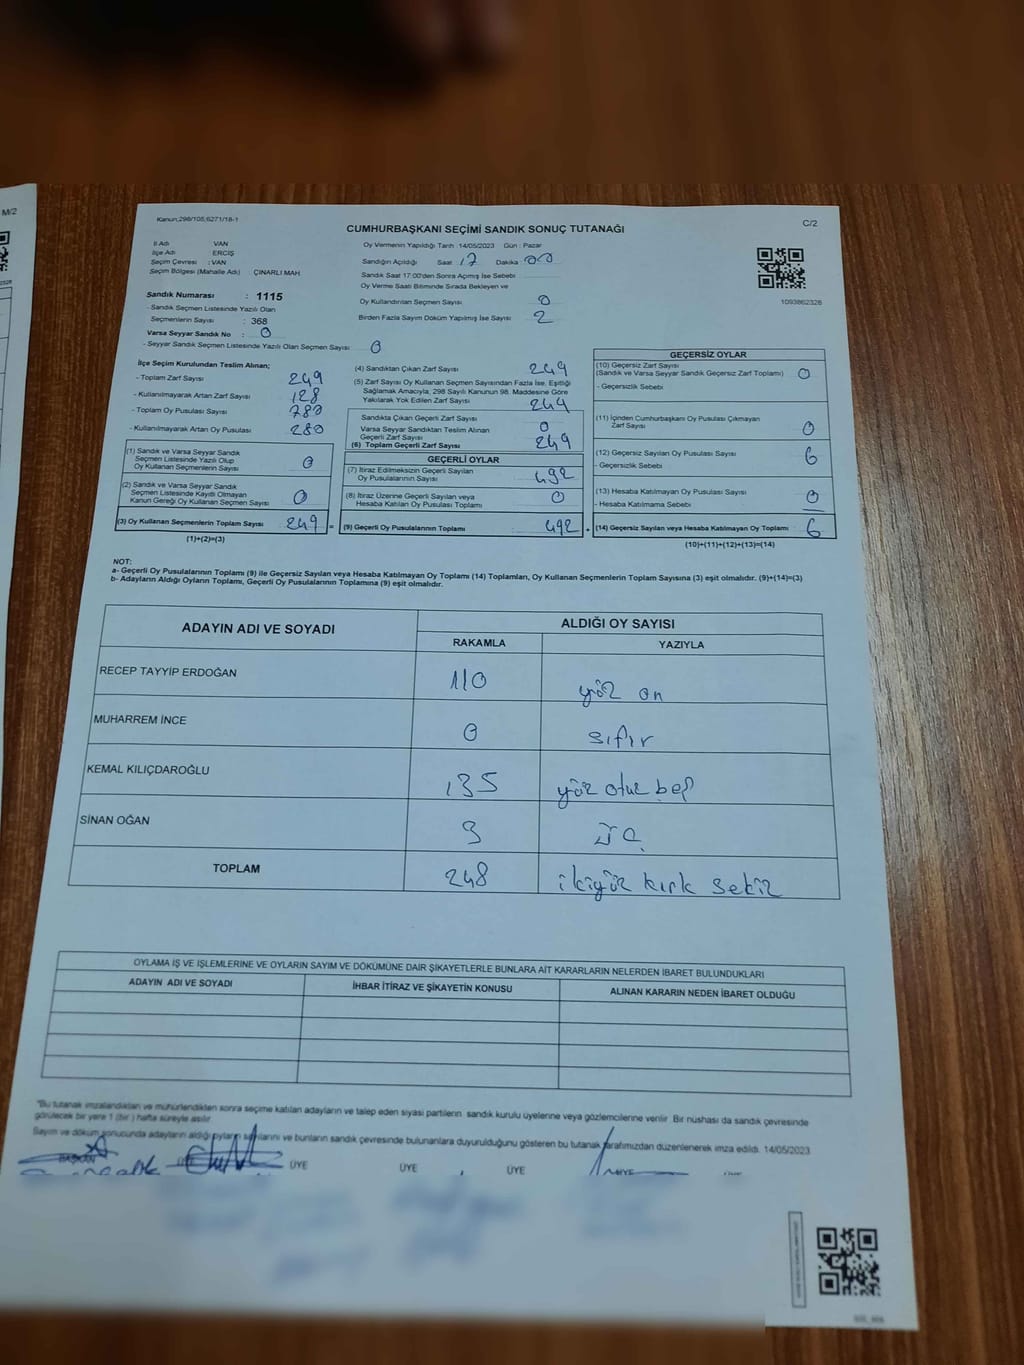 M/2
Kanun;298/105;6271/18-1
C/2
CUMHURBAŞKANI SEÇİMİ SANDIK SONUÇ TUTANAĞI
İl Adı VAN
İlçe Adı ERCİŞ
Seçim Çevresi : VAN
Seçim Bölgesi (Mahalle Adı) ÇINARLI MAH.
Sandık Numarası : 1115
- Sandık Seçmen Listesinde Yazılı Olan
Seçmenlerin Sayısı : 368
Varsa Seyyar Sandık No : 0
- Seyyar Sandık Seçmen Listesinde Yazılı Olan Seçmen Sayısı 0
Oy Vermenin Yapıldığı Tarih :14/05/2023 Gün : Pazar
Sandığın Açıldığı Saat : 17 Dakika : 00
Sandık Saat 17:00'den Sonra Açımış İse Sebebi
Oy Verme Saati Bitiminde Sırada Bekleyen ve
Oy Kullandırılan Seçmen Sayısı 0
Birden Fazla Sayım Döküm Yapılmış İse Sayısı 2
1093862328
İlçe Seçim Kurulundan Teslim Alınan;
- Toplam Zarf Sayısı 249
- Kullanılmayarak Artan Zarf Sayısı 128
- Toplam Oy Pusulası Sayısı 780
- Kullanılmayarak Artan Oy Pusulası 280
(1) Sandık ve Varsa Seyyar Sandık
Seçmen Listesinde Yazılı Olup
Oy Kullanan Seçmenlerin Sayısı 0
(2) Sandık ve Varsa Seyyar Sandık
Seçmen Listesinde Kayıtlı Olmayan
Kanun Gereği Oy Kullanan Seçmen Sayısı 0
(3) Oy Kullanan Seçmenlerin Toplam Sayısı 249 =
(1)+(2)=(3)
(4) Sandıktan Çıkan Zarf Sayısı 249
(5) Zarf Sayısı Oy Kullanan Seçmen Sayısından Fazla İse, Eşitliği
Sağlamak Amacıyla, 298 Sayılı Kanunun 98. Maddesine Göre
Yakılarak Yok Edilen Zarf Sayısı 249
Sandıkta Çıkan Geçerli Zarf Sayısı
Varsa Seyyar Sandıktan Teslim Alınan
Geçerli Zarf Sayısı 0
(6) Toplam Geçerli Zarf Sayısı 249
GEÇERLİ OYLAR
(7) İtiraz Edilmeksizin Geçerli Sayılan
Oy Pusulalarının Sayısı 492
(8) İtiraz Üzerine Geçerli Sayılan veya
Hesaba Katılan Oy Pusulaları Toplamı 0
(9) Geçerli Oy Pusulalarının Toplamı 492 +
GEÇERSİZ OYLAR
(10) Geçersiz Zarf Sayısı
(Sandık ve Varsa Seyyar Sandık Geçersiz Zarf Toplamı) 0
- Geçersizlik Sebebi
(11) İçinden Cumhurbaşkanı Oy Pusulası Çıkmayan
Zarf Sayısı 0
(12) Geçersiz Sayılan Oy Pusulası Sayısı 6
- Geçersizlik Sebebi
(13) Hesaba Katılmayan Oy Pusulası Sayısı 0
- Hesaba Katılmama Sebebi
(14) Geçersiz Sayılan veya Hesaba Katılmayan Oy Toplamı 6
(10)+(11)+(12)+(13)=(14)
NOT:
a- Geçerli Oy Pusulalarının Toplamı (9) ile Geçersiz Sayılan veya Hesaba Katılmayan Oy Toplamı (14) Toplamları, Oy Kullanan Seçmenlerin Toplam Sayısına (3) eşit olmalıdır. (9)+(14)=(3)
b- Adayların Aldığı Oyların Toplamı, Geçerli Oy Pusulalarının Toplamına (9) eşit olmalıdır.
ADAYIN ADI VE SOYADI ALDIĞI OY SAYISI
RAKAMLA YAZIYLA
RECEP TAYYİP ERDOĞAN 110 yüz on
MUHARREM İNCE 0 sıfır
KEMAL KILIÇDAROĞLU 135 yüz otuz beş
SİNAN OĞAN 3 üç
TOPLAM 248 ikiyüz kırk sekiz
OYLAMA İŞ VE İŞLEMLERİNE VE OYLARIN SAYIM VE DÖKÜMÜNE DAİR ŞİKAYETLERLE BUNLARA AİT KARARLARIN NELERDEN İBARET BULUNDUKLARI
ADAYIN ADI VE SOYADI İHBAR İTİRAZ VE ŞİKAYETİN KONUSU ALINAN KARARIN NEDEN İBARET OLDUĞU
"Bu tutanak imzalandıktan ve mühürlendikten sonra seçime katılan adayların ve talep eden siyasi partilerin sandık kurulu üyelerine veya gözlemcilerine verilir. Bir nüshası da sandık çevresinde
görülecek bir yere 1 (bir) hafta süreyle asılır.
Sayım ve döküm sonucunda adayların aldığı oyların sayılarını ve bunların sandık çevresinde bulunanlara duyurulduğunu gösteren bu tutanak tarafımızdan düzenlenerek imza edildi. 14/05/2023
BAŞKAN ÜYE ÜYE ÜYE ÜYE ÜYE